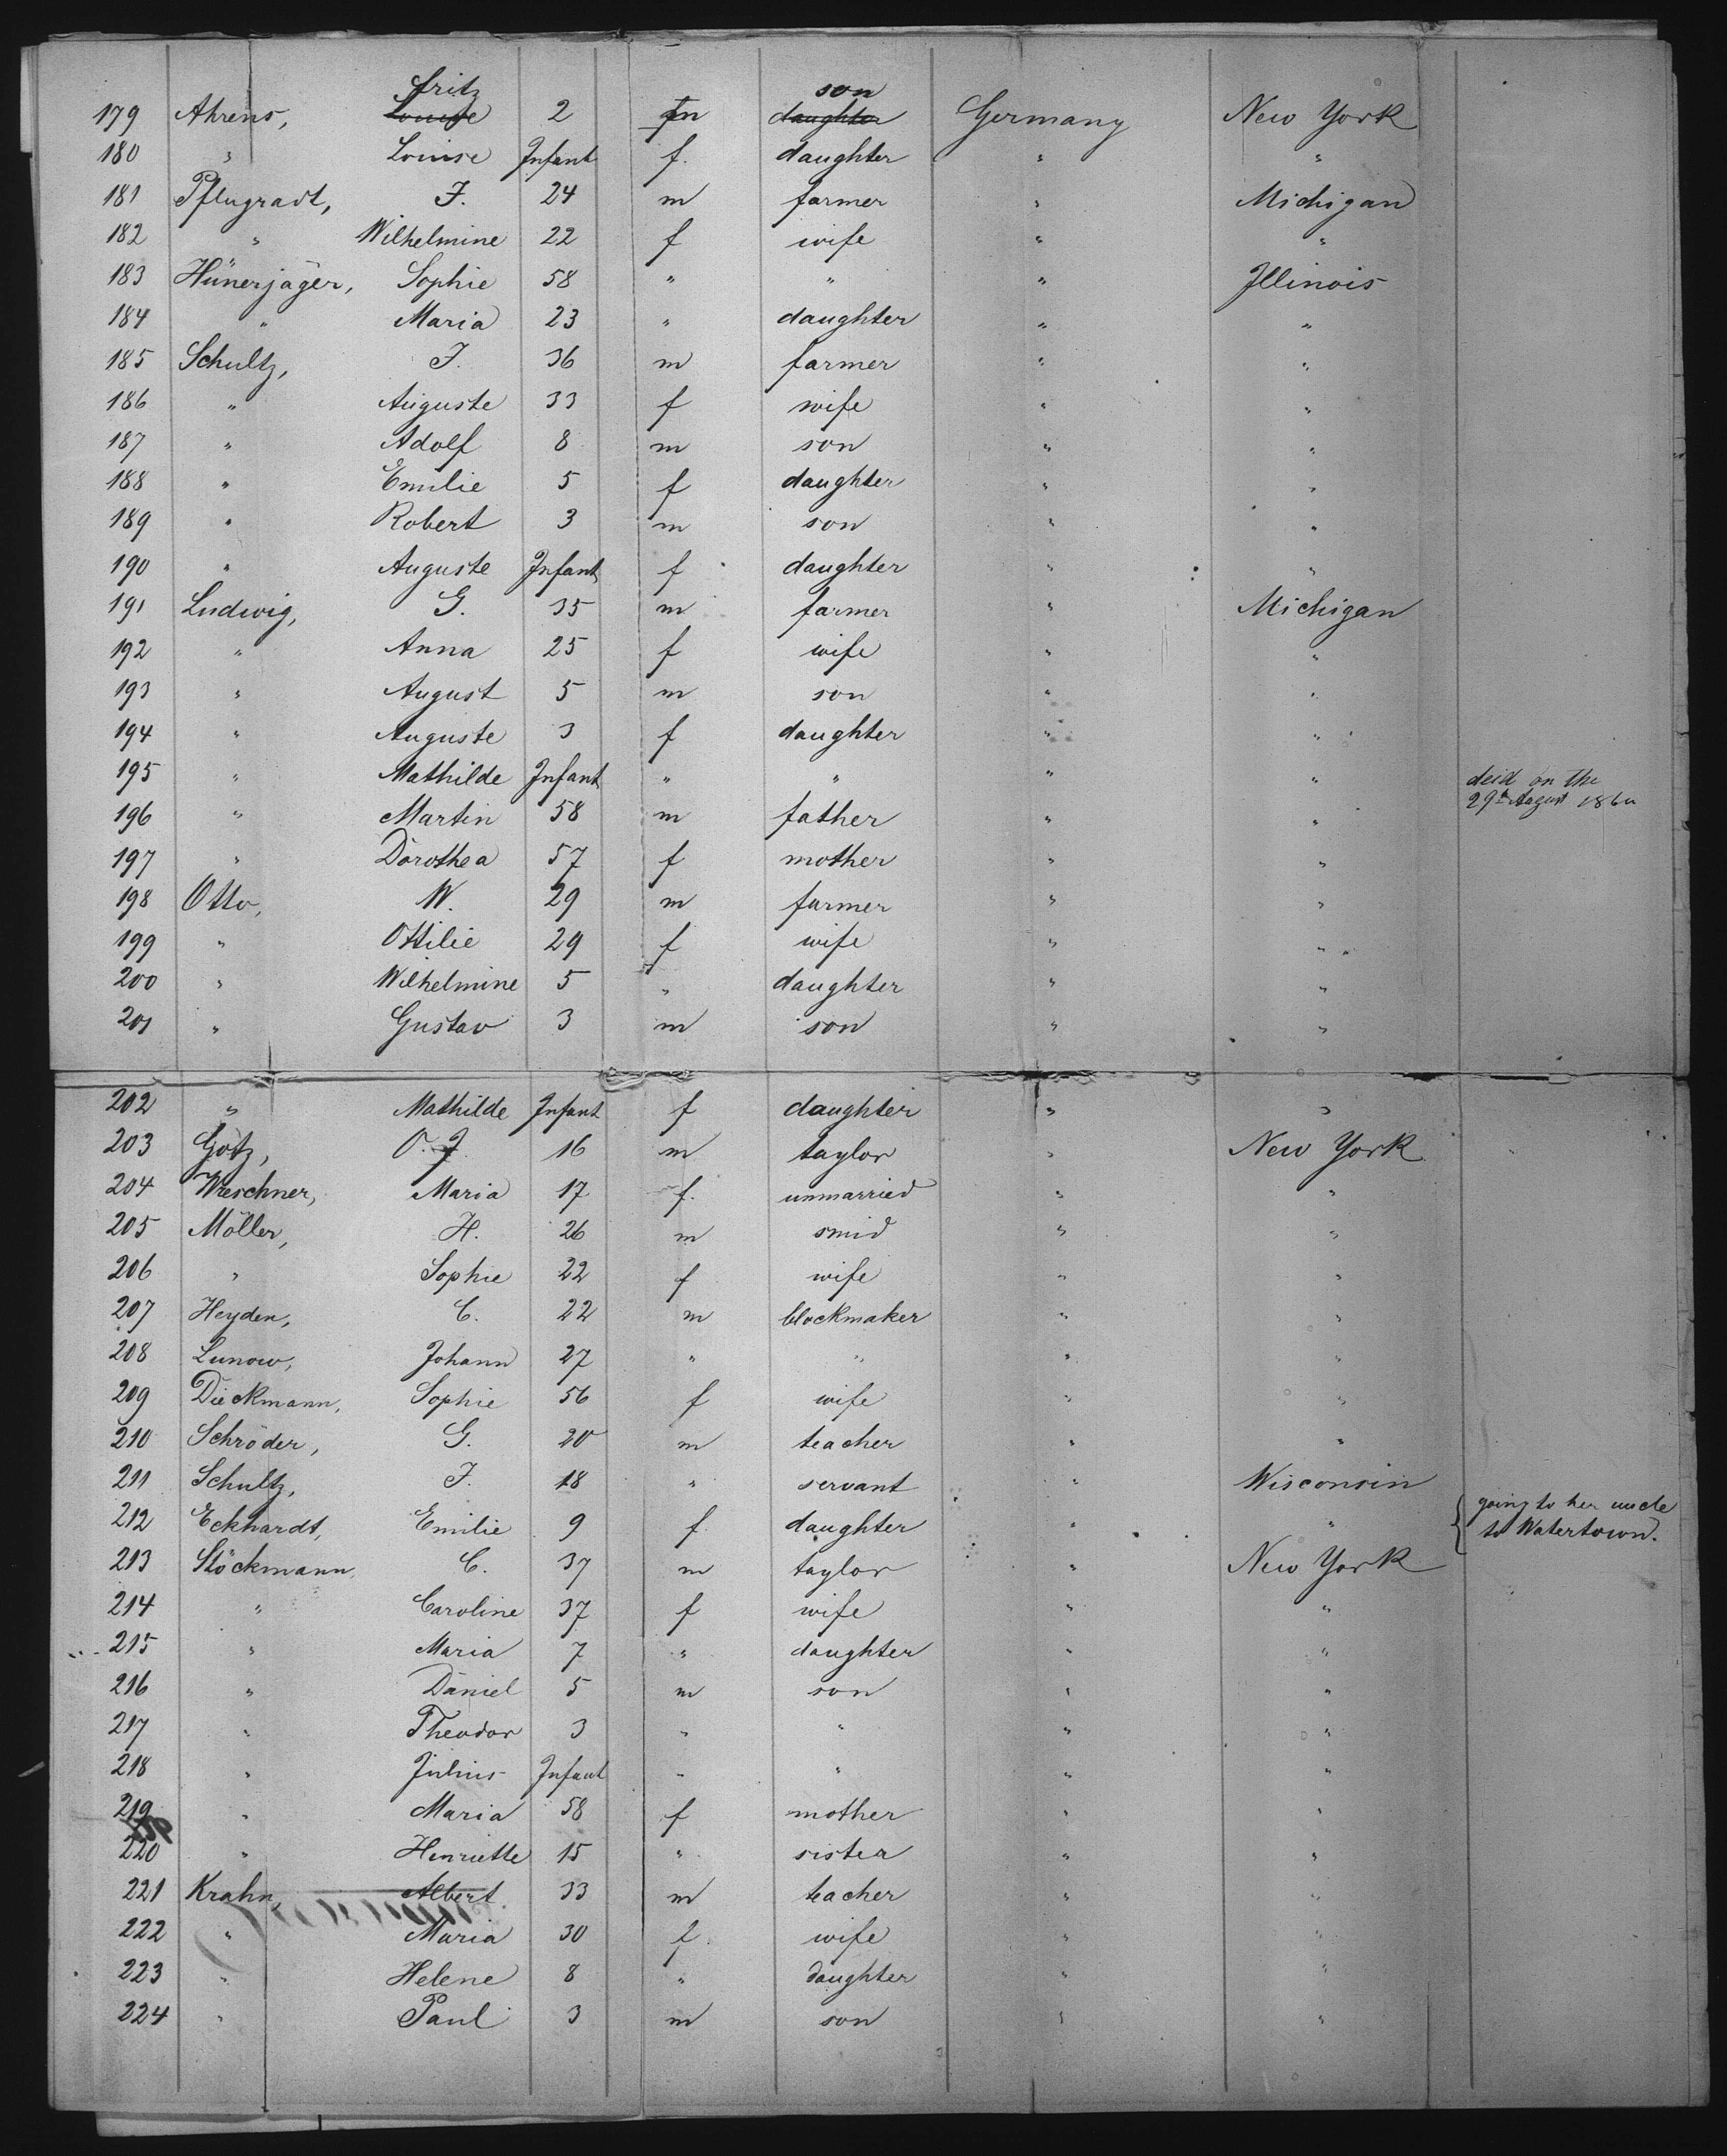 179 Ahrens, Fritz Louise 2 m son daughter Germany New York
180 " Louise Infant f. daughter " "
181 Pflugradt, F. 24 m farmer " Michigan
182 " Wilhelmine 22 f wife " "
183 Hünerjäger, Sophie 58 " " " Illinois
184 " Maria 23 " daughter " "
185 Schultz, F. 36 m farmer " "
186 " Auguste 33 f wife " "
187 " Adolf 8 m son " "
188 " Emilie 5 f daughter " "
189 " Robert 3 m son " "
190 " Auguste Infant f daughter " "
191 Ludwig, G. 35 m farmer " Michigan
192 " Anna 25 f wife " "
193 " August 5 m son " "
194 " Auguste 3 f daughter " "
195 " Mathilde Infant " " " " deid on the
29th August 186
196 " Martin 58 m father " "
197 " Dorothea 57 f mother " "
198 Otto, W. 29 m farmer " "
199 " Ottilie 29 f wife " "
200 " Wilhelmine 5 " daughter " "
201 " Gustav 3 m son " "
202 " Mathilde Infant f daughter " "
203 Götz, O. F. 16 m taylor " New York
204 Wreschner, Maria 17 f. unmarried " "
205 Möller, H. 26 m smid " "
206 " Sophie 22 f wife " "
207 Heyden, C. 22 m blockmaker " "
208 Lunow, Johann 27 " " " "
209 Dieckmann, Sophie 56 f wife " "
210 Schröder, G. 20 m teacher " "
211 Schultz, F. 18 " servant " Wisconsin
212 Eckhardt, Emilie 9 f daughter " " { going to her uncle
to Watertown.
213 Stöckmann, C. 37 m taylor " New York
214 " Caroline 37 f wife " "
215 " Maria 7 " daughter " "
216 " Daniel 5 m son " "
217 " Theodor 3 " " " "
218 " Julius Infant " " " "
219 " Maria 58 f mother " "
220 " Henriette 15 " sister " "
221 Krahn, Albert 33 m teacher " "
222 " Maria 30 f. wife " "
223 " Helene 8 " daughter " "
224 " Paul 3 m son " "